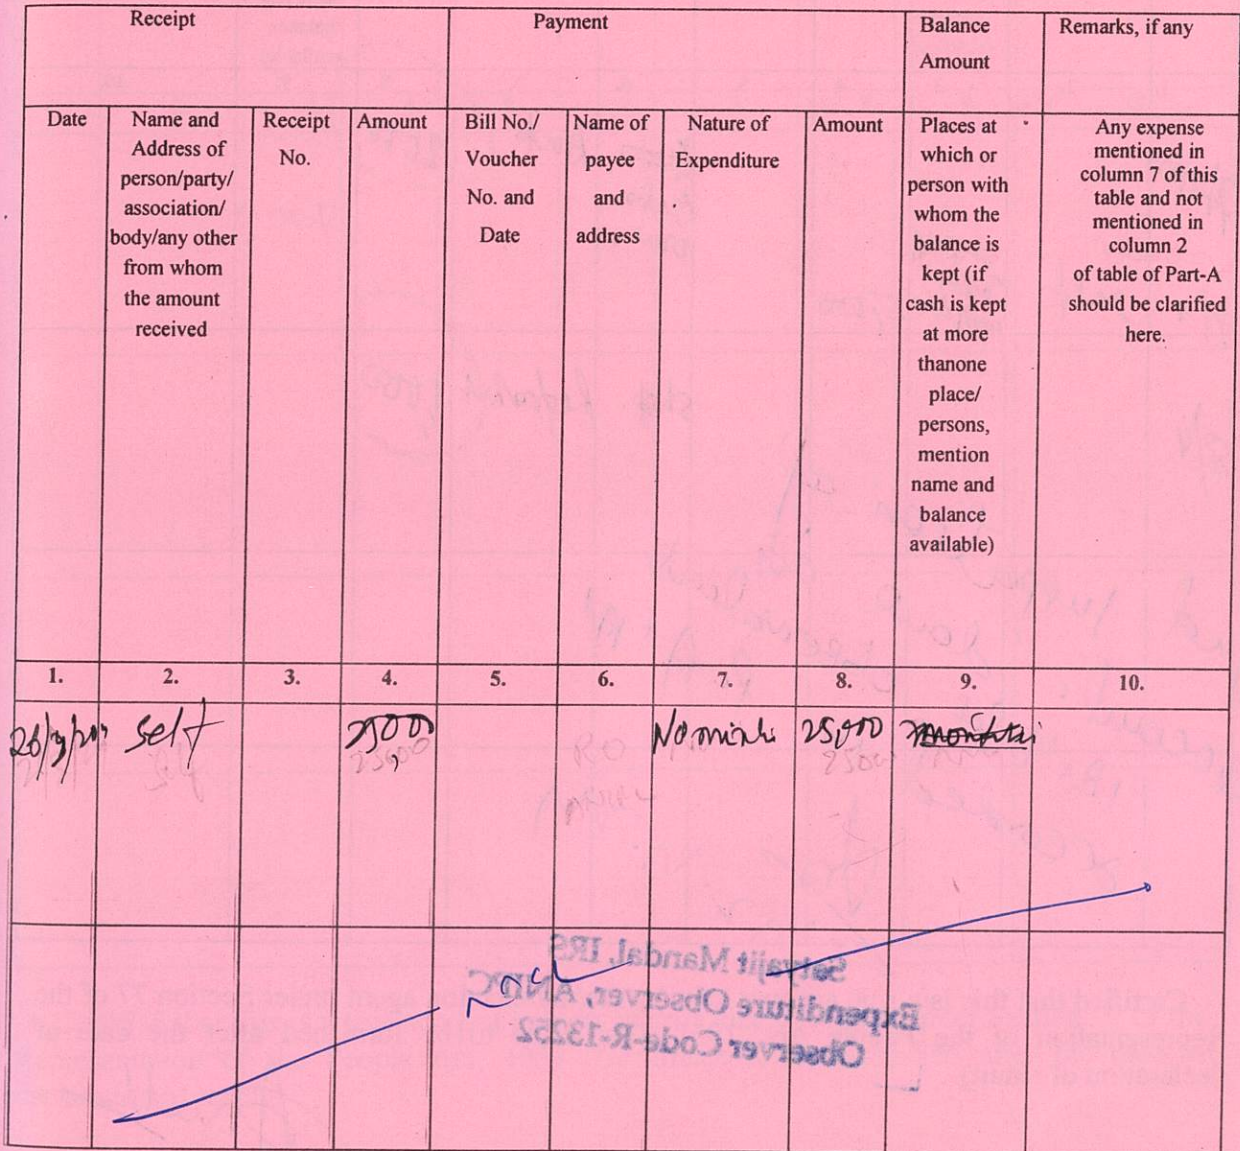 Receipt Payment Balance Amount Remarks, if any
Date
Name and
Address of
person/party/
association/
body/any other
from whom
the amount
received
Receipt
No.
Amount
Bill No./
Voucher
No. and
Date
Name of
payee
and
address
Nature of
Expenditure
Amount
Places at
which or
person with
whom the
balance is
kept (if
cash is kept
at more
thanone
place/
persons,
mention
name and
balance
available)
Any expense
mentioned in
column 7 of this
table and not
mentioned in
column 2
of table of Part-A
should be clarified
here.
1. 2. 3. 4. 5. 6. 7. 8. 9. 10.
Self 25,000 25,000
25,000
Satyajit Mandal, IRS
Expenditure Observer, ANIPC
Observer Code-R-13252